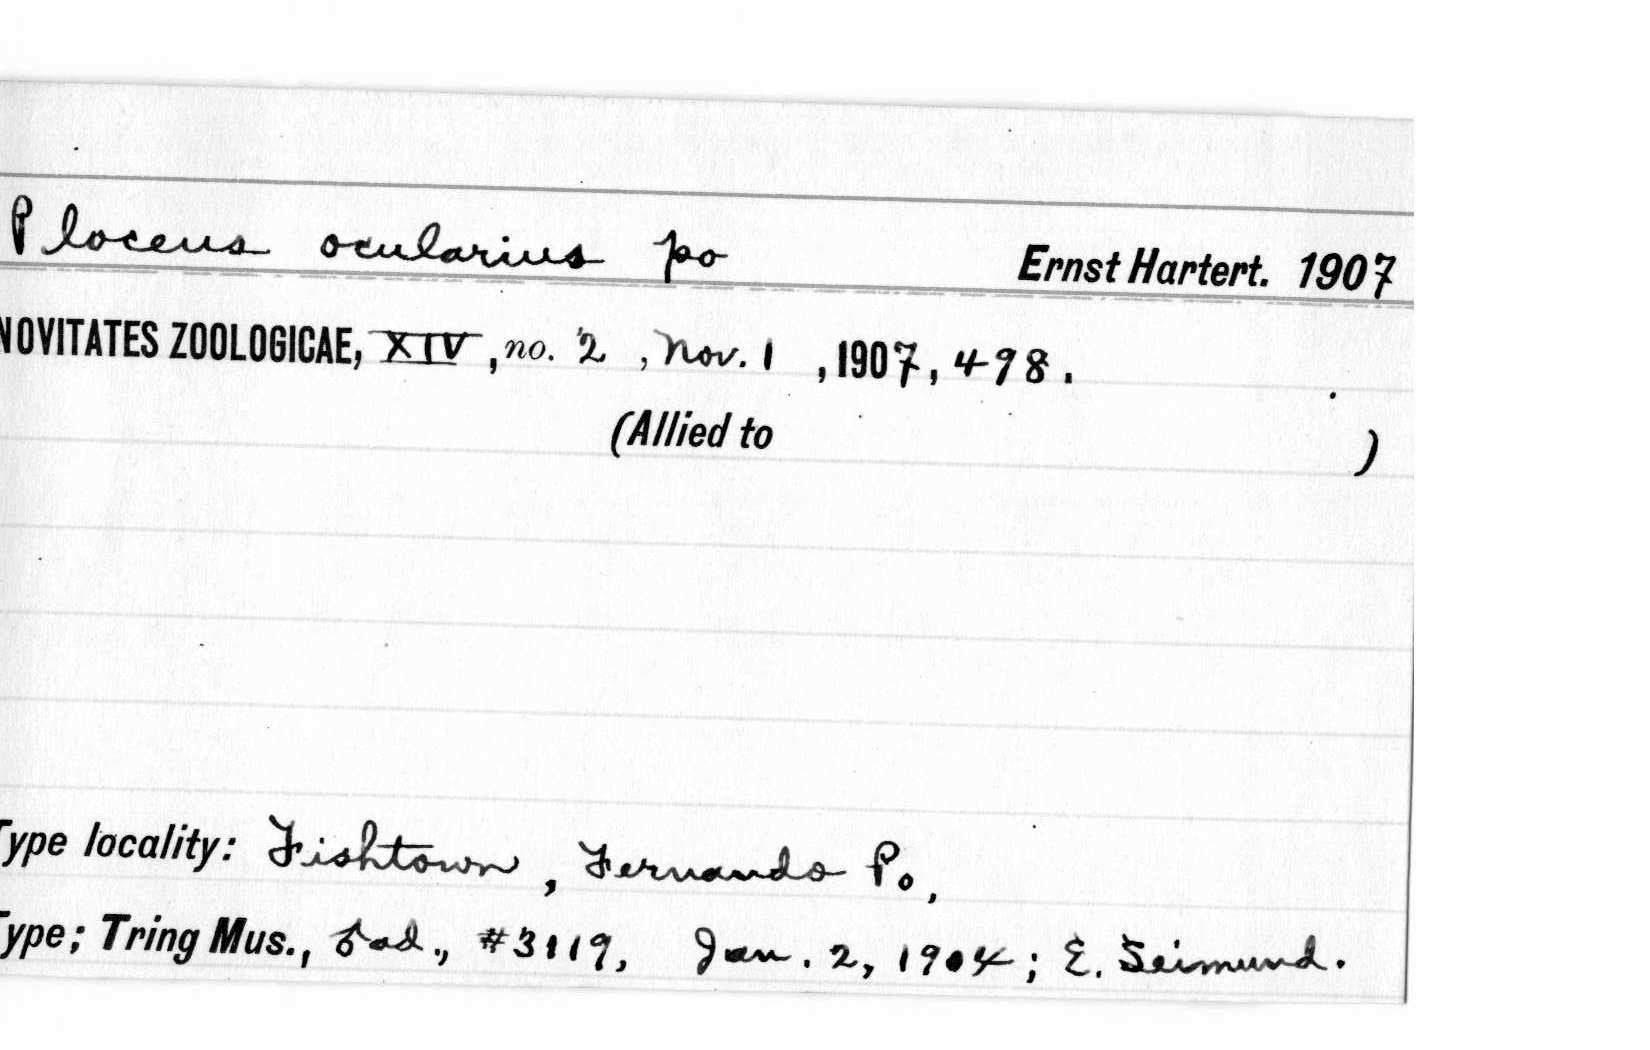 Ploceus ocularius po Ernst Hartert. 1907
NOVITATES ZOOLOGICAE, XIV, no. 2, Nov. 1, 1907, 498.
(Allied to )
Type locality: Fishtown, Fernando Po,
Type; Tring Mus., ad., #3119, Jan. 2, 1904; E. Seimund.